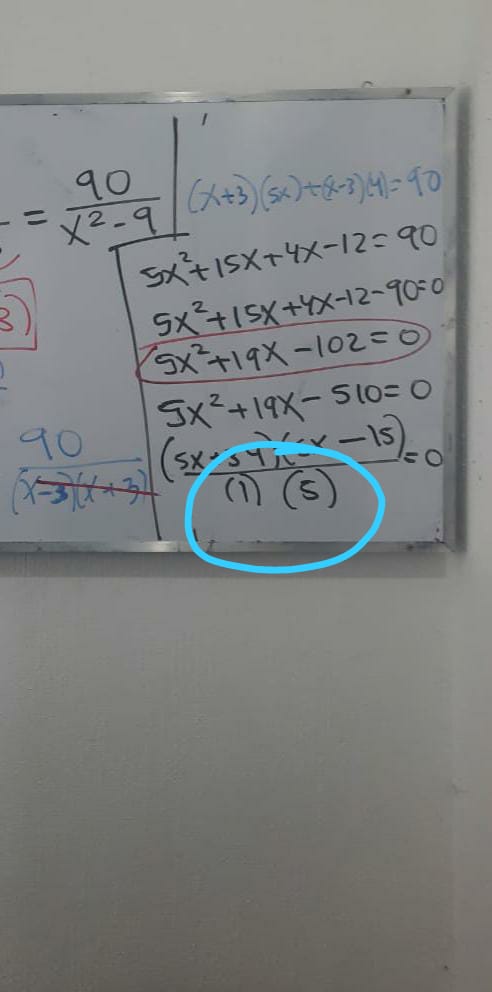 = 90 / x² - 9
(x+3)(5x)+(x-3)(4)=90
5x²+15x+4x-12=90
5x²+15x+4x-12-90=0
5x²+19x-102=0
5x²+19x-510=0
(5x+34)(5x-15) / (1) (5) =0
3)
90 / (x-3)(x+3)